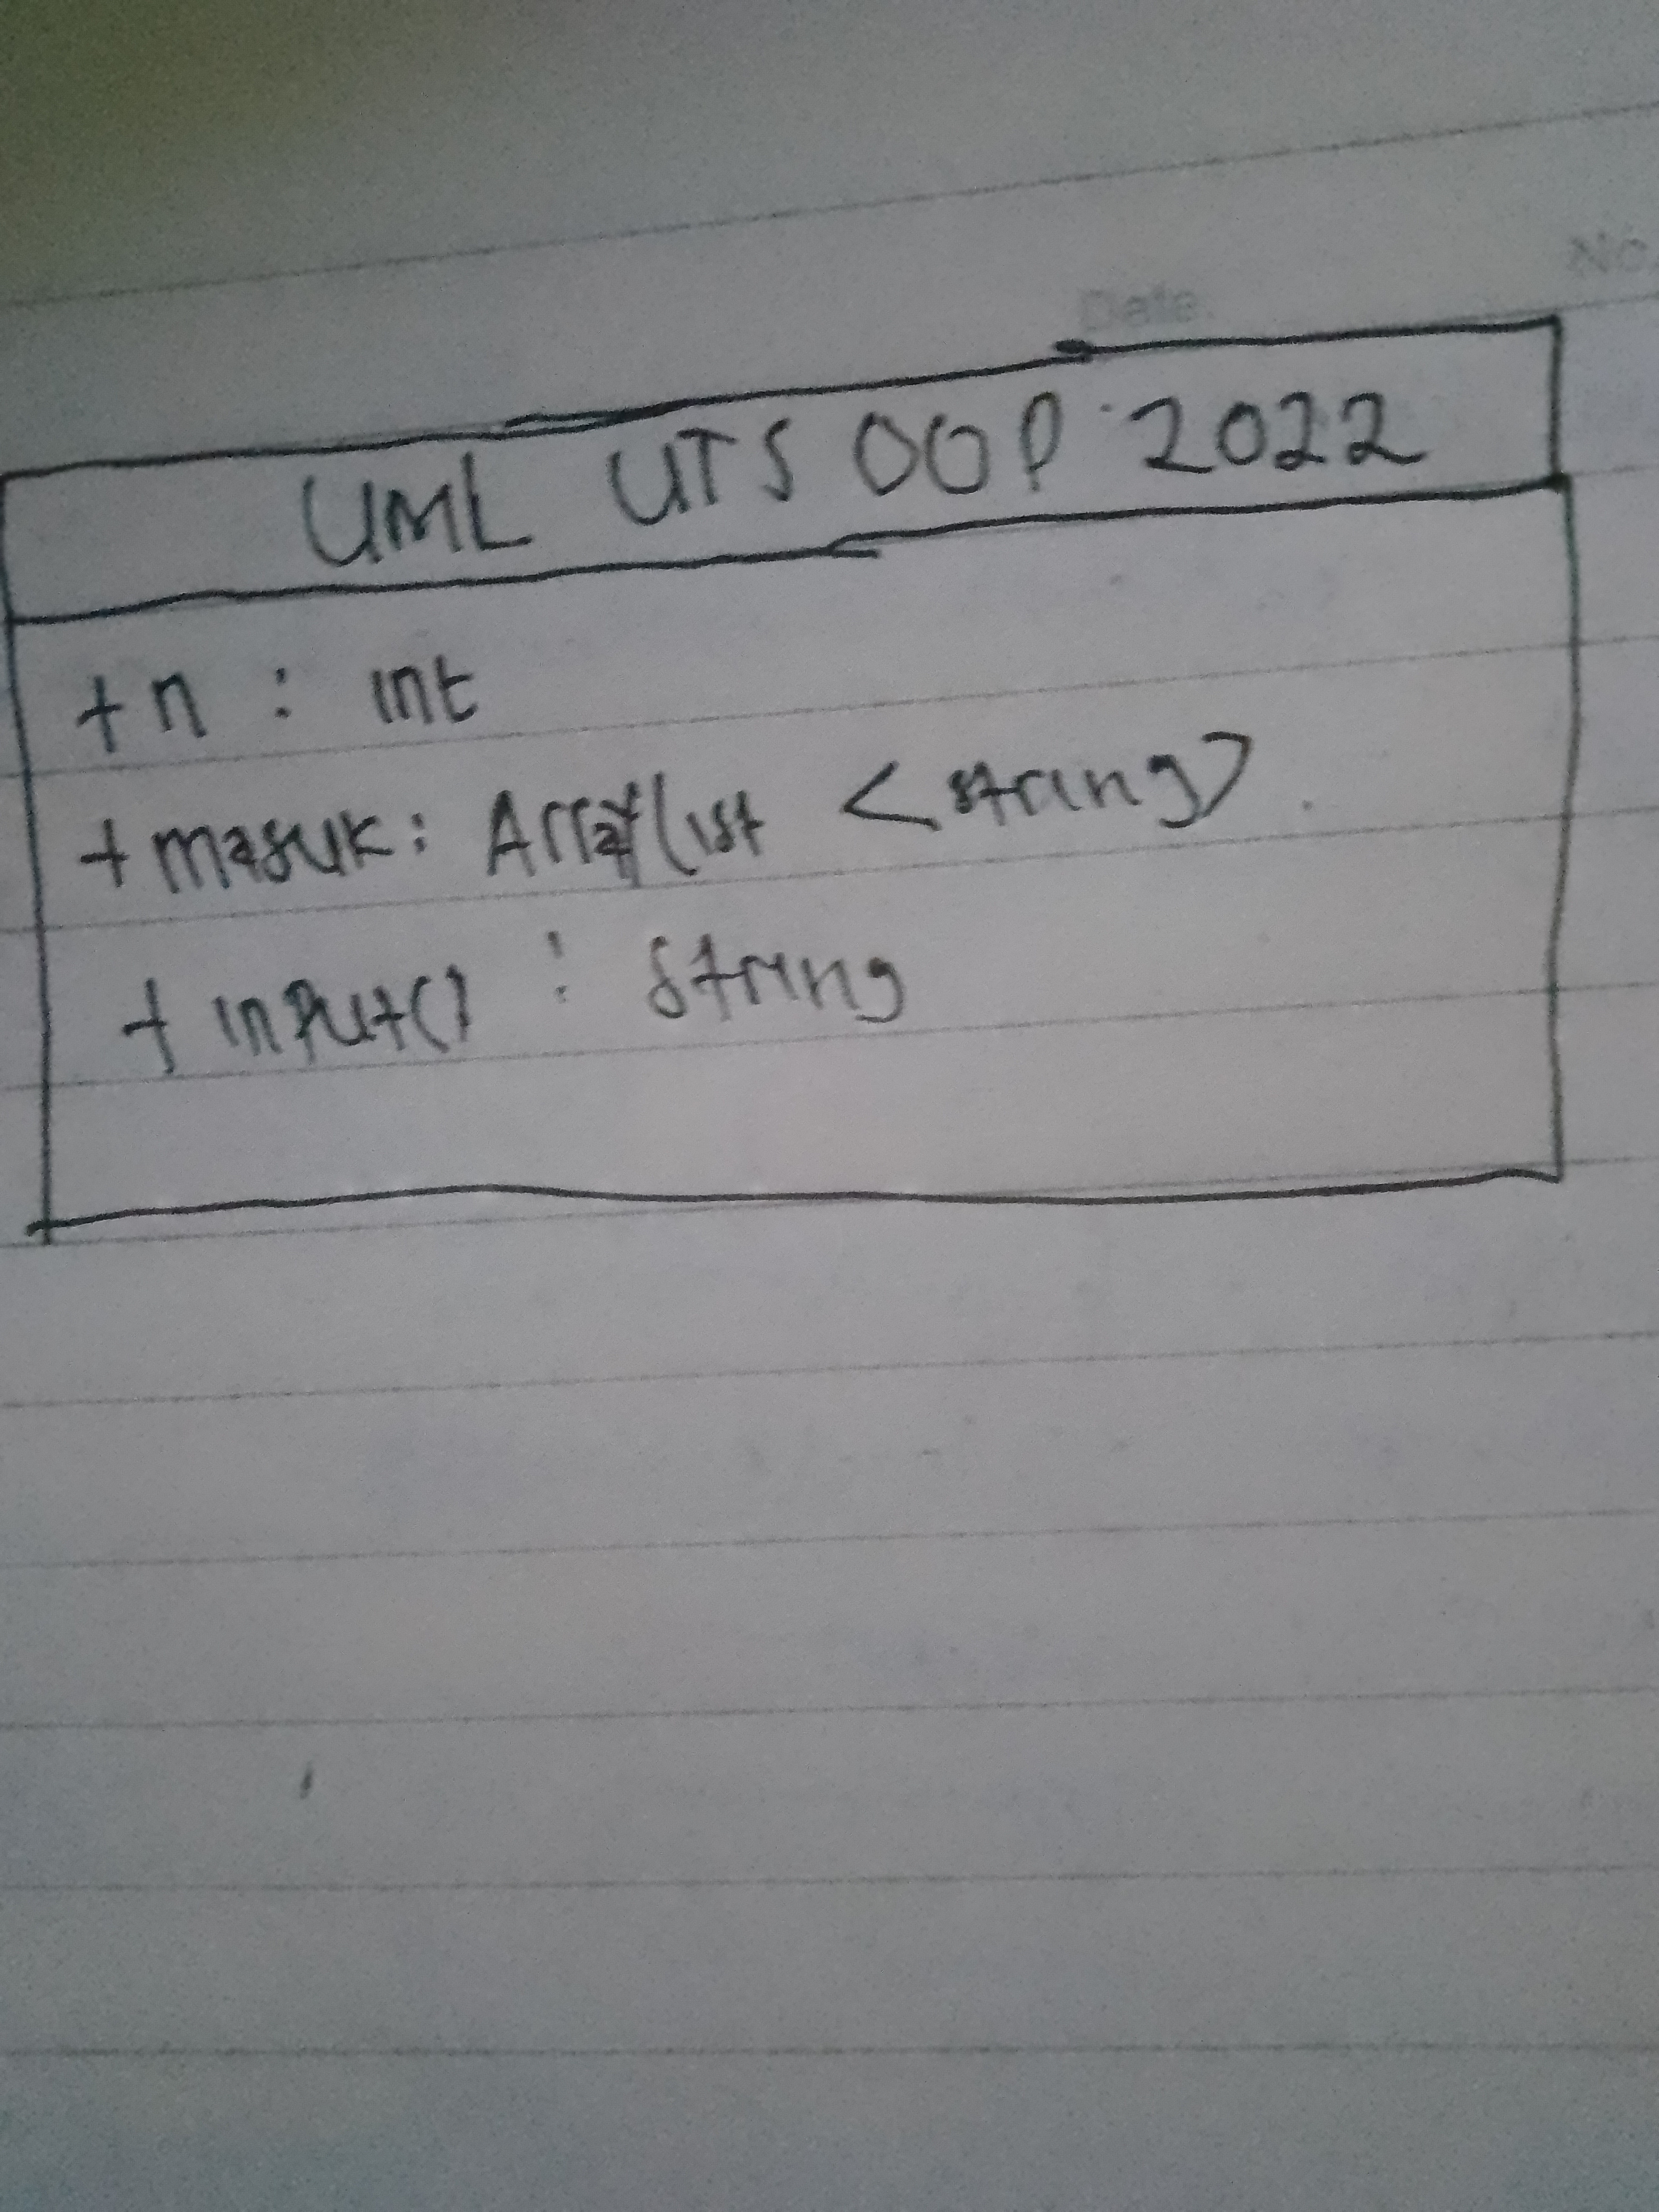 No.
Date.
UML UTS OOP 2022
+ n : int
+ masuk : Arraylist <string>
+ input() : string